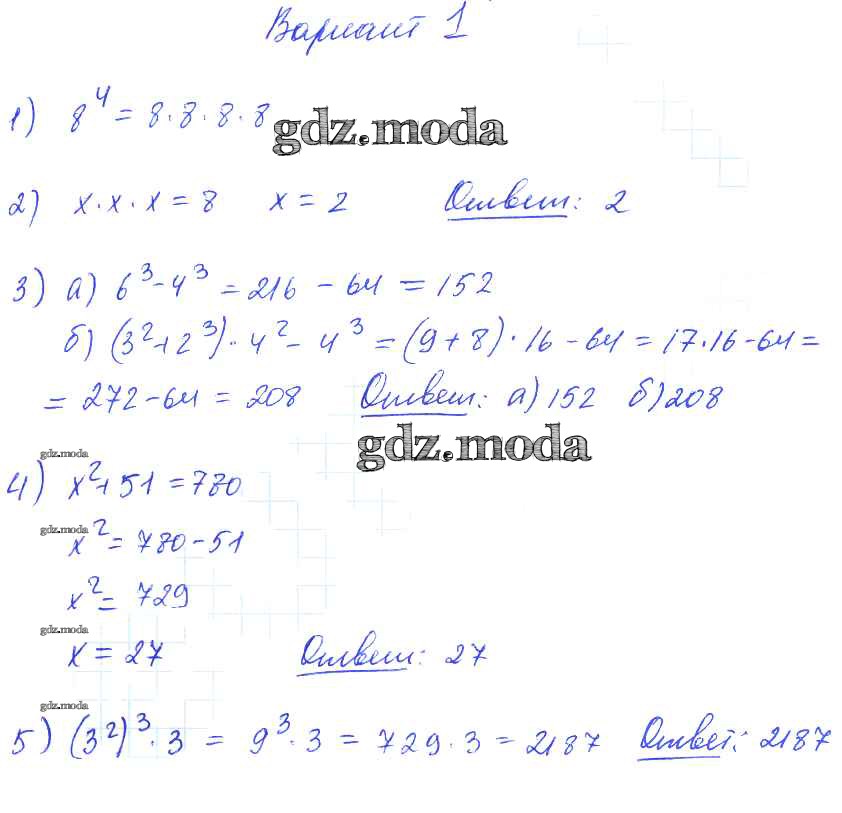 Вариант 1
1) 8⁴ = 8·8·8·8
gdz.moda
2) x·x·x = 8 x = 2 Ответ: 2
3) а) 6³-4³ = 216 - 64 = 152
б) (3²+2³)·4²- 4³ = (9+8)·16-64 = 17·16-64 =
= 272-64 = 208 Ответ: а) 152 б) 208
gdz.moda
gdz.moda
4) x²+51 = 780
gdz.moda
x² = 780-51
x² = 729
gdz.moda
x = 27 Ответ: 27
gdz.moda
5) (3²)³·3 = 9³·3 = 729·3 = 2187 Ответ: 2187